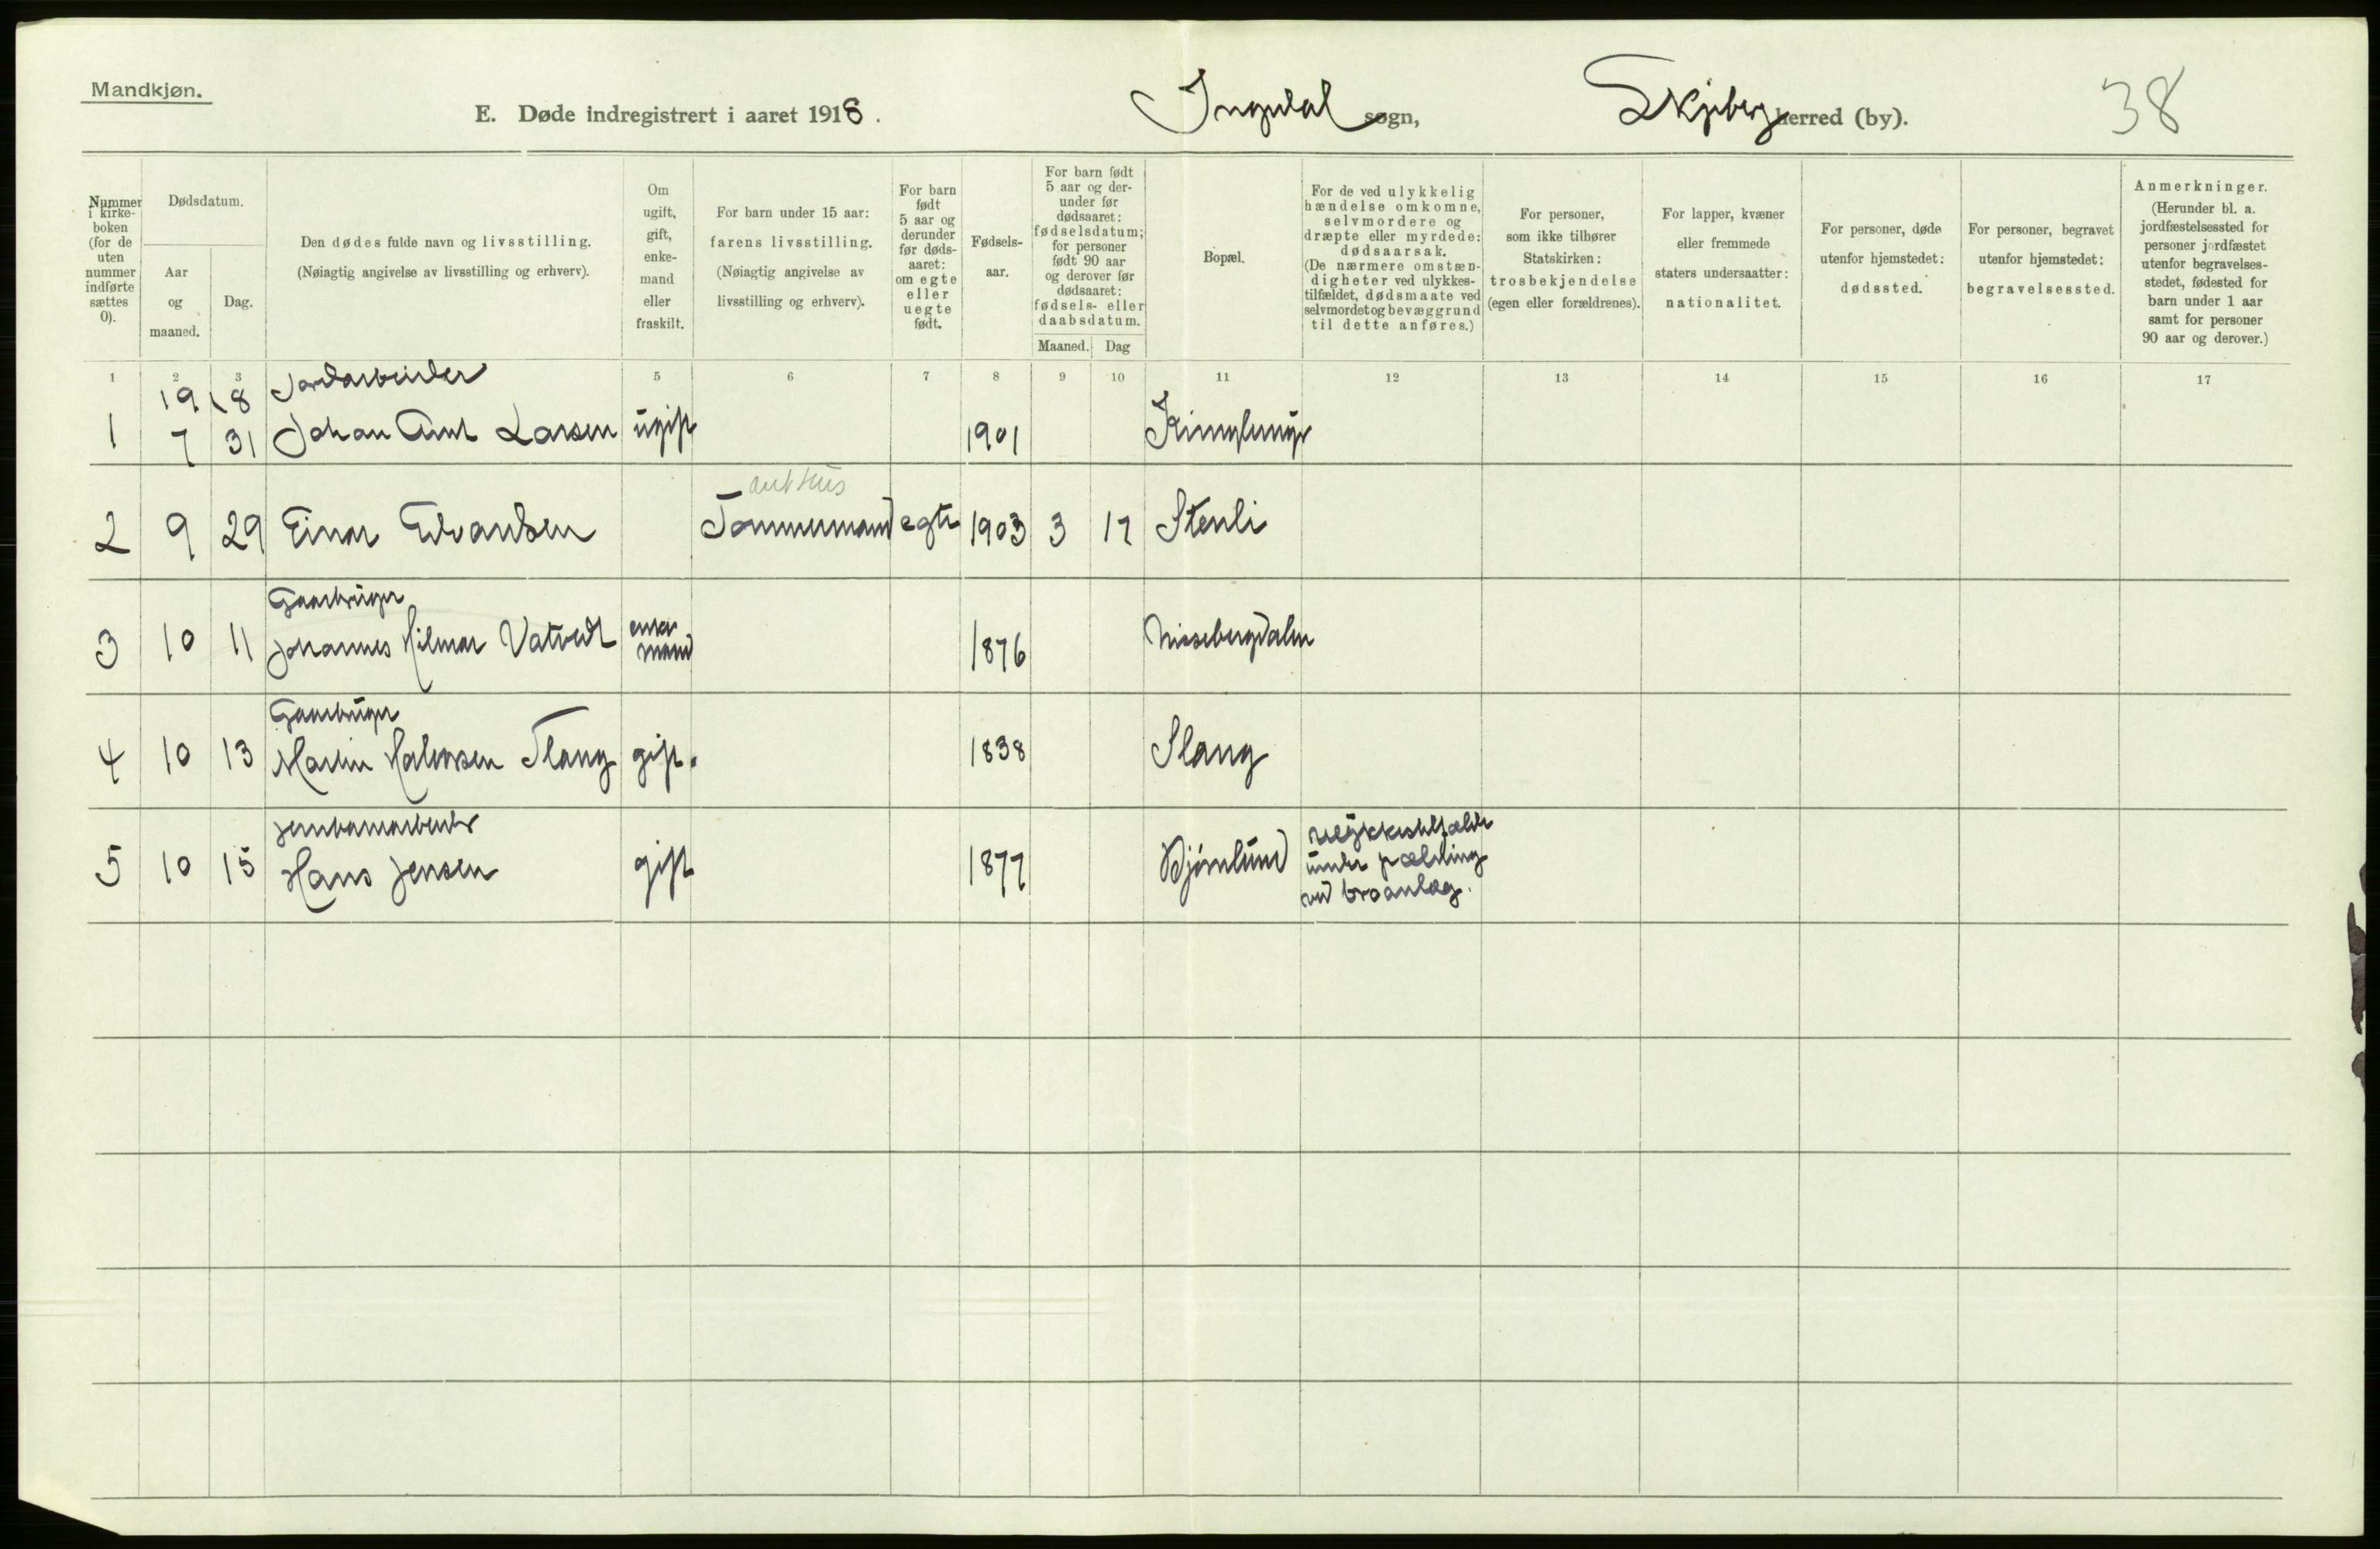 Mandkjøn.
E. Døde indregistrert i aaret 1918.
Ingedal sogn,
Skjeberg herred (by).
38
Nummer i kirke-boken (for de uten nummer indførte sættes 0).
Dødsdatum.
Aar og maaned.
Dag.
Den dødes fulde navn og livsstilling.
(Nøiagtig angivelse av livsstilling og erhverv).
Om ugift, gift, enke-mand eller fraskilt.
For barn under 15 aar: farens livsstilling.
(Nøiagtig angivelse av livsstilling og erhverv).
For barn født 5 aar og derunder før døds-aaret: om egte eller uegte født.
Fødsels-aar.
For barn født 5 aar og der-under før dødsaaret: fødselsdatum; for personer født 90 aar og derover før dødsaaret: fødsels- eller daabsdatum.
Maaned.
Dag
Bopæl.
For de ved ulykkelig hændelse omkomne, selvmordere og dræpte eller myrdede: dødsaarsak.
(De nærmere omstæn-digheter ved ulykkes-tilfældet, dødsmaate ved selvmordet og bevæggrund til dette anføres.)
For personer, som ikke tilhører Statskirken: trosbekjendelse (egen eller forældrenes).
For lapper, kvæner eller fremmede staters undersaatter: nationalitet.
For personer, døde utenfor hjemstedet: dødssted.
For personer, begravet utenfor hjemstedet: begravelsessted.
Anmerkninger.
(Herunder bl. a. jordfæstelsessted for personer jordfæstet utenfor begravelses-stedet, fødested for barn under 1 aar samt for personer 90 aar og derover.)
1 2 3 5 6 7 8 9 10 11 12 13 14 15 16 17
1918
Jordarbeider
1 7 31 Johan Larsen ugift 1901
2 9 29 Einar Edvardsen Tømmermand egte 1903 3 17 Stenli
Gaardbruger
3 10 11 Johannes Hilmar Vatvedt enke mand 1876 Nissebergdalen
Gaardbruger
4 10 13 Martin Halvorsen Slang gift. 1838 Slang
Jernbanearbeider
5 10 15 Hans Jensen gift 1877 Bjørnlund ulykkestilfælde
under pæleling
ved broanlæg.